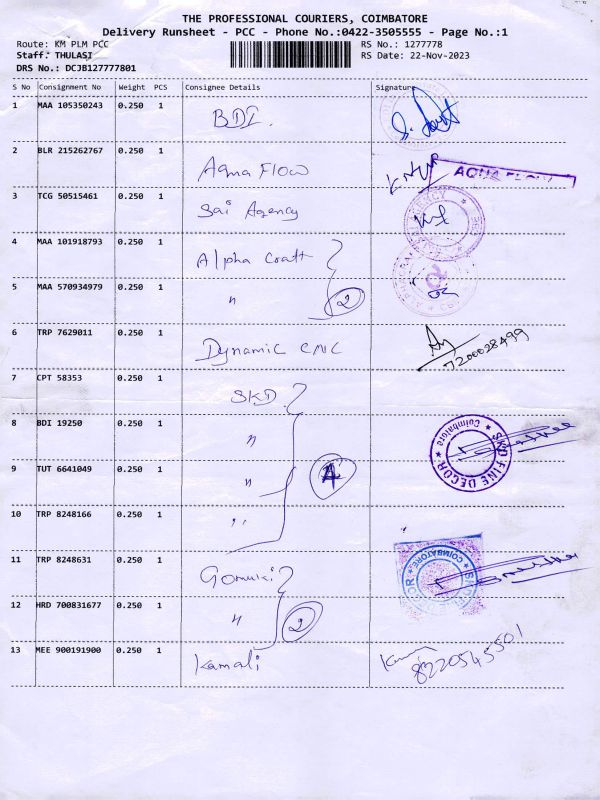 THE PROFESSIONAL COURIERS, COIMBATORE
Delivery Runsheet - PCC - Phone No.:0422-3505555 - Page No.:1
Route: KM PLM PCC RS No.: 1277778
Staff: THULASI RS Date: 22-Nov-2023
DRS No.: DCJB127777801
S No Consignment No Weight PCS Consignee Details Signature
1 MAA 105350243 0.250 1 BDI.
2 BLR 215262767 0.250 1 Aqua Flow AQUA FLOW
3 TCG 50515461 0.250 1 Sai Agency
4 MAA 101918793 0.250 1 Alpha Craft
5 MAA 570934979 0.250 1 " 2
6 TRP 7629011 0.250 1 Dynamic CNC 7200028499
7 CPT 58353 0.250 1 SKD.
8 BDI 19250 0.250 1 " SKD FINE DECOR * Coimbatore *
9 TUT 6641049 0.250 1 " 4
10 TRP 8248166 0.250 1 "
11 TRP 8248631 0.250 1 Gomuki COIMBATORE
12 HRD 700831677 0.250 1 " 2
13 MEE 900191900 0.250 1 Kamali 8220545501